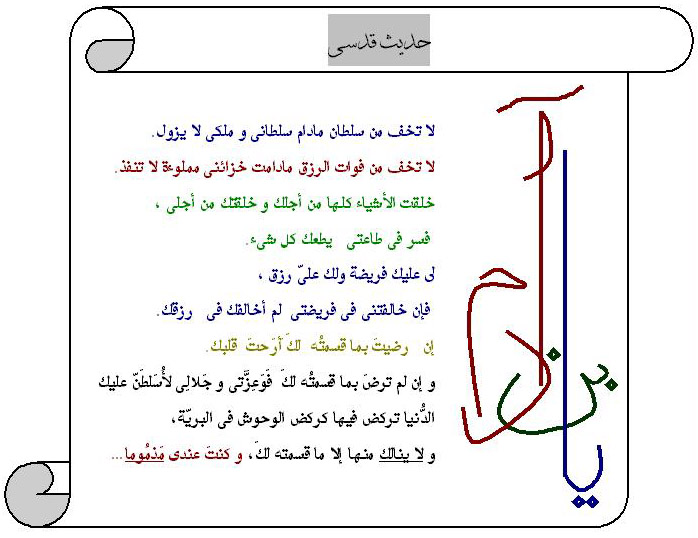 حديث قدسى
لا تخف من سلطان مادام سلطانى و ملكى لا يزول.
لا تخف من فوات الرزق مادامت خزائنى مملوءة لا تنفذ.
خلقت الأشياء كلها من أجلك و خلقتك من أجلى ،
فسر فى طاعتى يطعك كل شىء.
لى عليك فريضة ولك علىّ رزق ،
فإن خالفتنى فى فريضتى لم أخالفك فى رزقك.
إن رضيتَ بما قسمتُه لكَ أرَحتَ قلبك.
و إن لم ترضَ بما قسمتُه لكَ فَوَعِزَّتى و جَلالِى لأُسَلطَنّ عليك
الدُّنيا تركض فيها كركض الوحوش فى البريّة،
و لا ينالك منها إلا ما قسمته لكَ، و كنتَ عندى مَذمُوما...
يا بن آدم